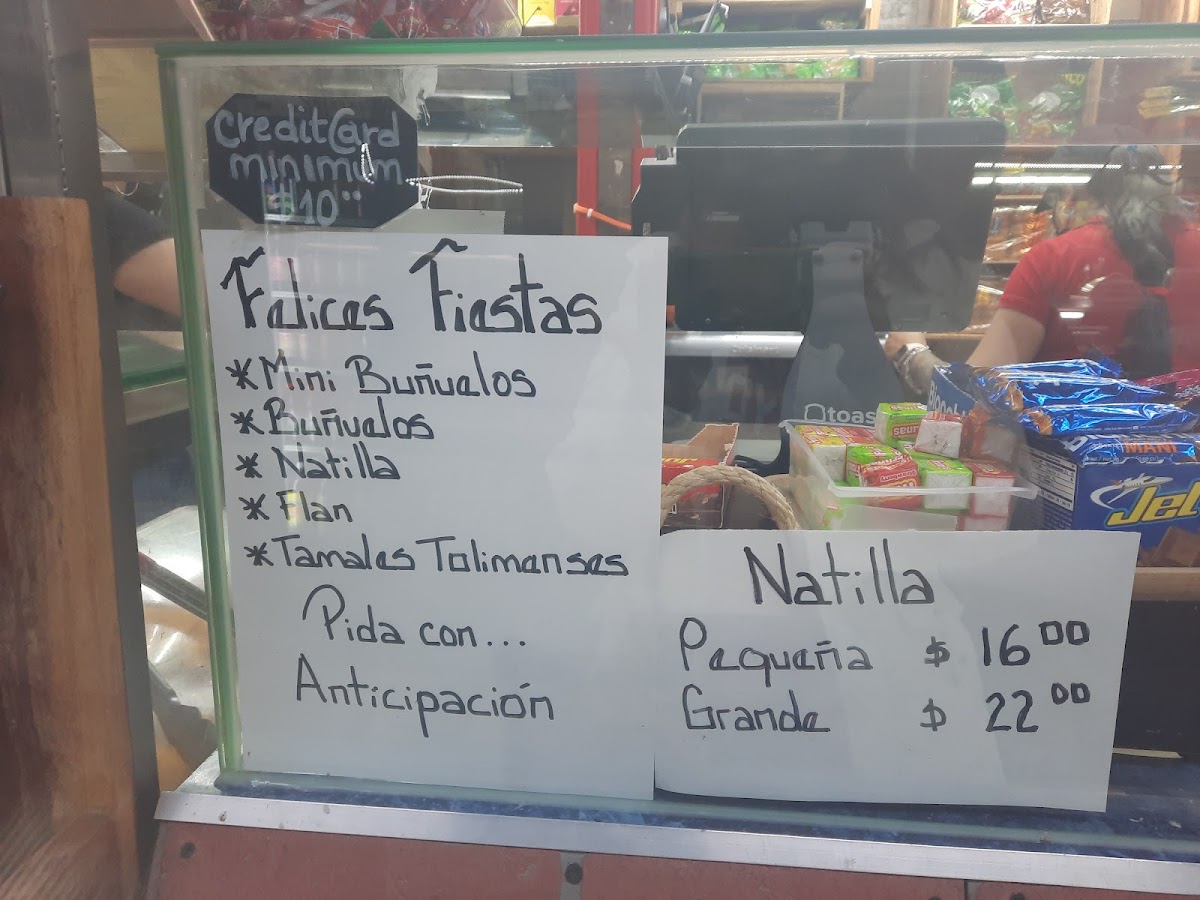 creditC@rd
minimum
$10
Felices Fiestas
* Mini Buñuelos
* Buñuelos
* Natilla
* Flan
* Tamales Tolimenses
Pida con...
Anticipación
toas
MANI
Jet
Natilla
Pequeña $ 16 00
Grande $ 22 00